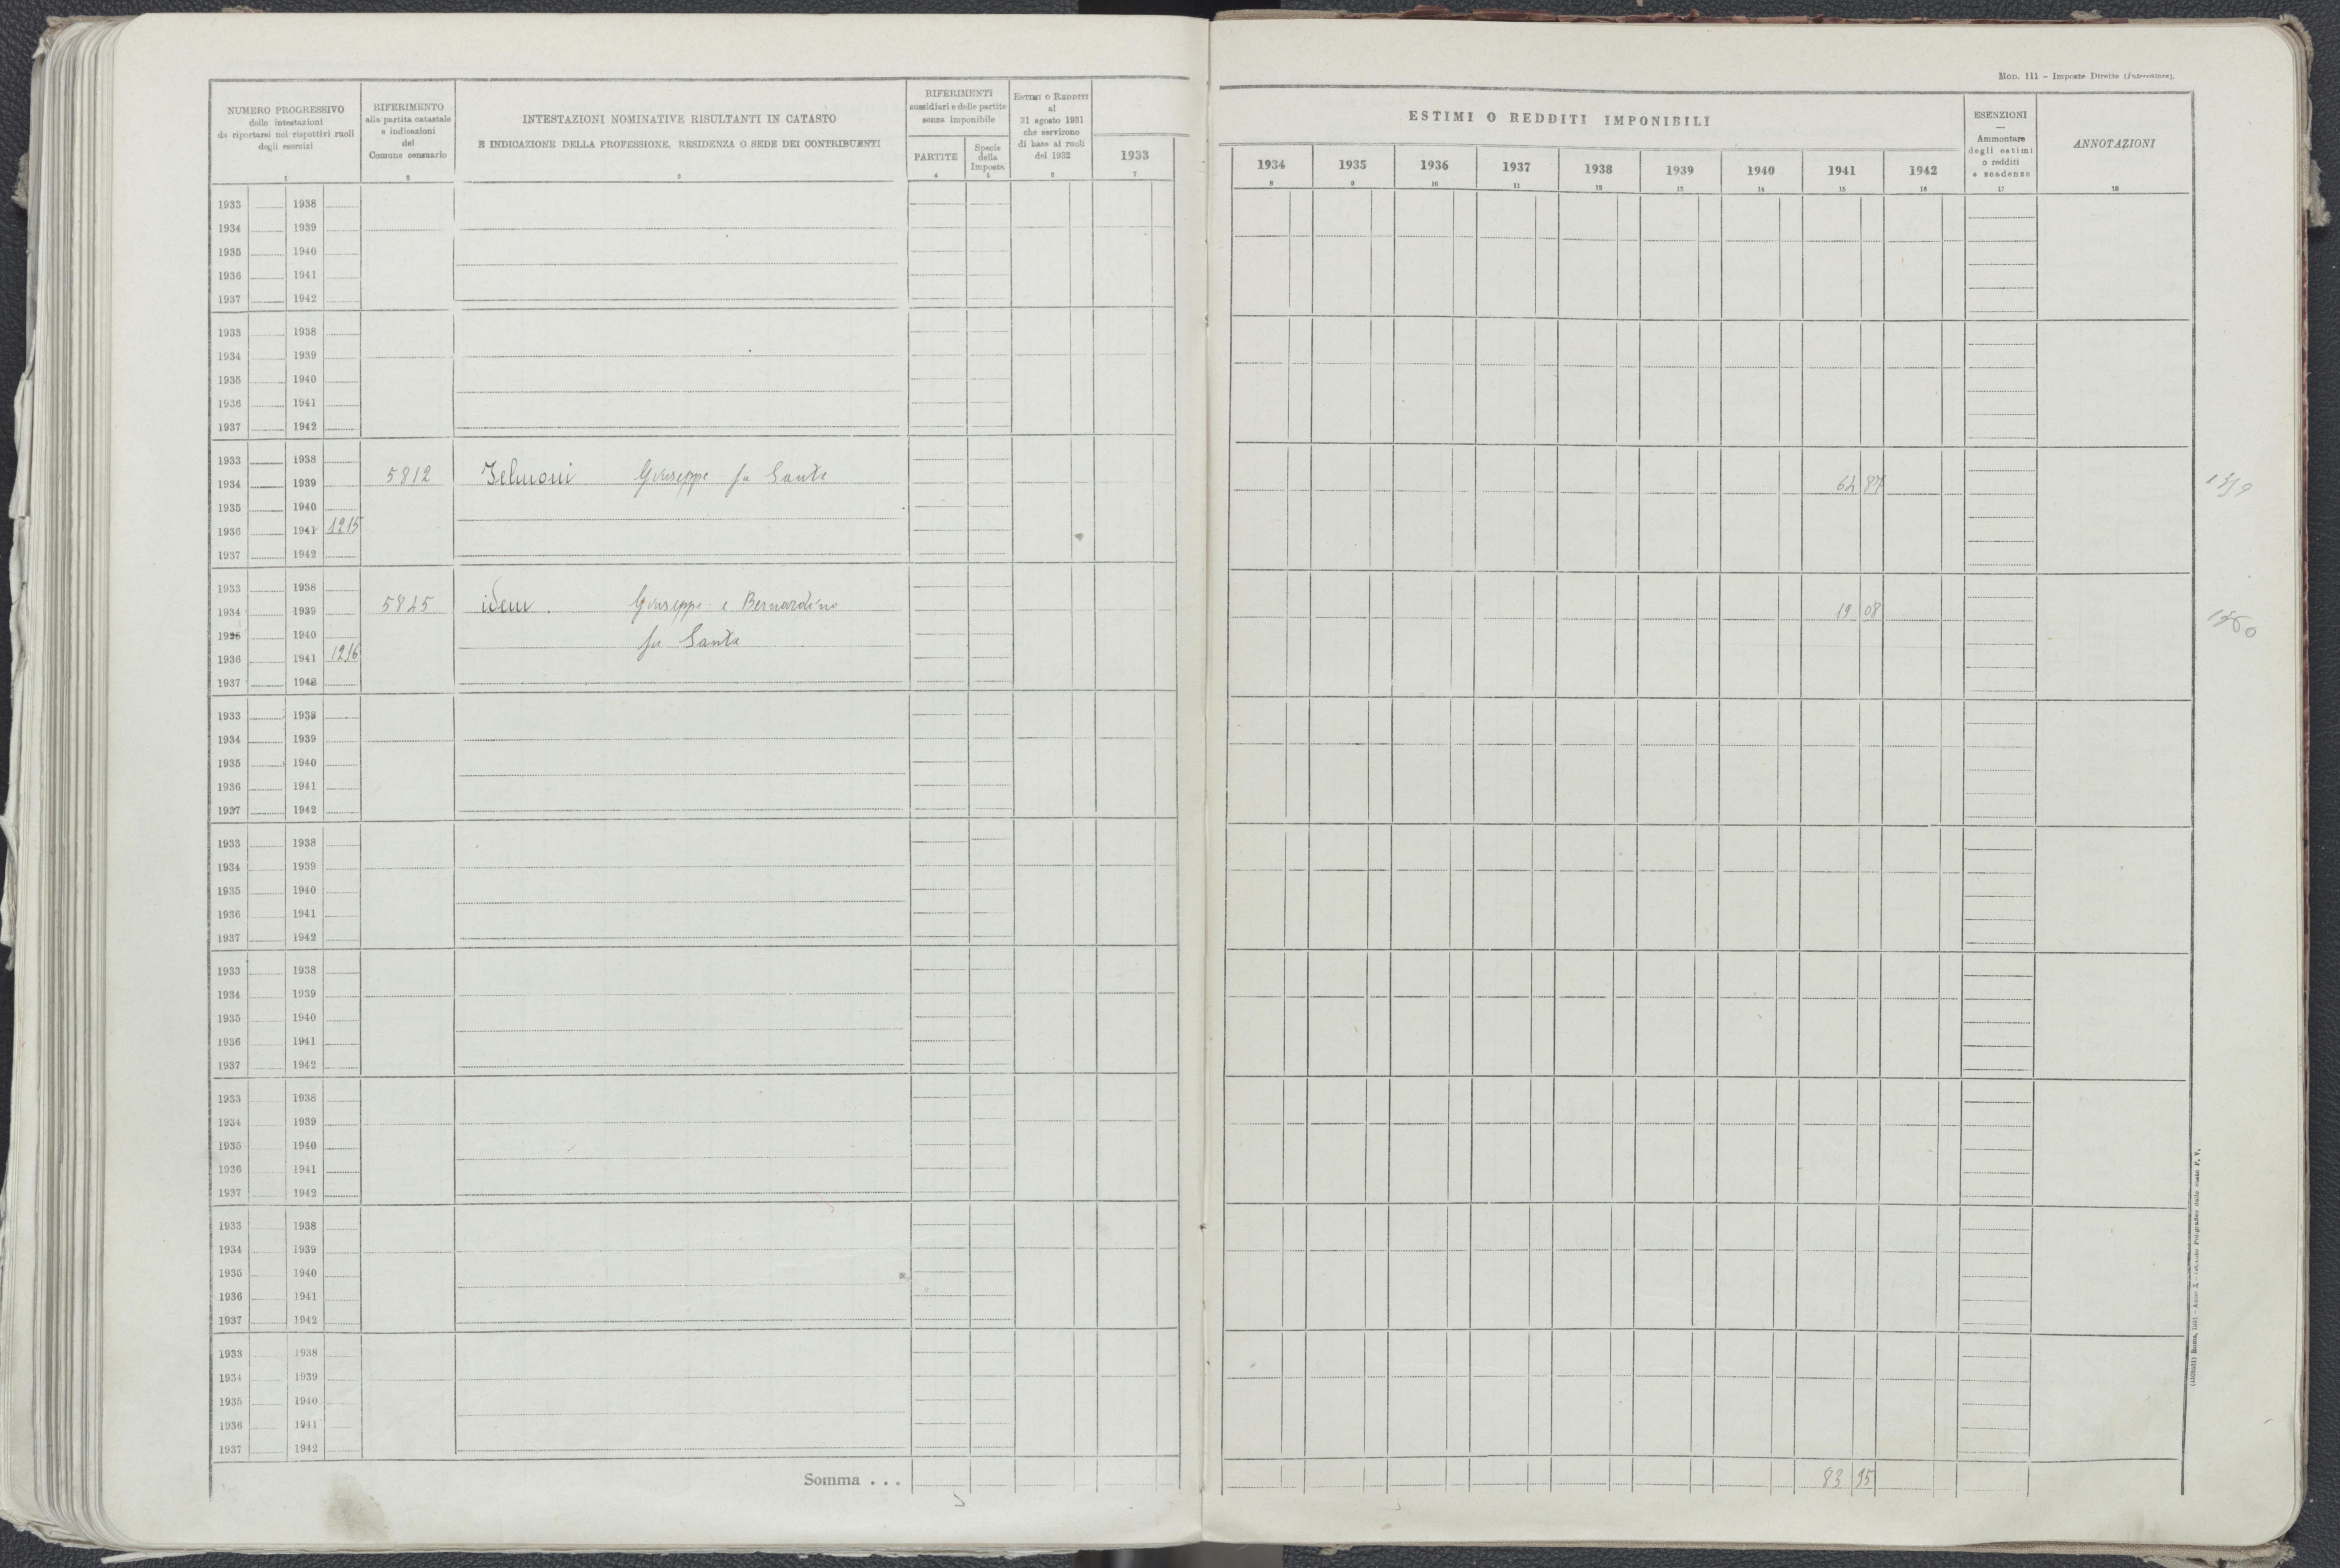 Mod. 111 – Imposte Dirette (Intercalare).
NUMERO PROGRESSIVO
delle intestazioni
da riportarsi nei rispettivi ruoli
degli esercizi
1
RIFERIMENTO
alla partita catastale
e indicazioni
del
Comune censuario
2
INTESTAZIONI NOMINATIVE RISULTANTI IN CATASTO
E INDICAZIONE DELLA PROFESSIONE, RESIDENZA O SEDE DEI CONTRIBUENTI
3
RIFERIMENTI
sussidiari e delle partite
senza imponibile
PARTITE
4
Specie
della
Imposta
5
Estimi o Redditi
al
31 agosto 1931
che servirono
di base ai ruoli
del 1932
6
ESTIMI O REDDITI IMPONIBILI
1933 1934 1935 1936 1937 1938 1939 1940 1941 1942
7 8 9 10 11 12 13 14 15 16
ESENZIONI
—
Ammontare
degli estimi
o redditi
e scadenze
17
ANNOTAZIONI
18
1933 1938
1934 1939
1935 1940
1936 1941
1937 1942
1933 1938
1934 1939
1935 1940
1936 1941
1937 1942
1933 1938
1934 1939 5812 Giuseppe fu Sante 64 87
1935 1940
1936 1941 1215
1937 1942
1933 1938
1934 1939 5825 idem . Giuseppe e Bernardino 19 08
1935 1940 fu Sante
1936 1941 1216
1937 1942
1933 1938
1934 1939
1935 1940
1936 1941
1937 1942
1933 1938
1934 1939
1935 1940
1936 1941
1937 1942
1933 1938
1934 1939
1935 1940
1936 1941
1937 1942
1933 1938
1934 1939
1935 1940
1936 1941
1937 1942
1933 1938
1934 1939
1935 1940
1936 1941
1937 1942
1933 1938
1934 1939
1935 1940
1936 1941
1937 1942
Somma . . . 83 95